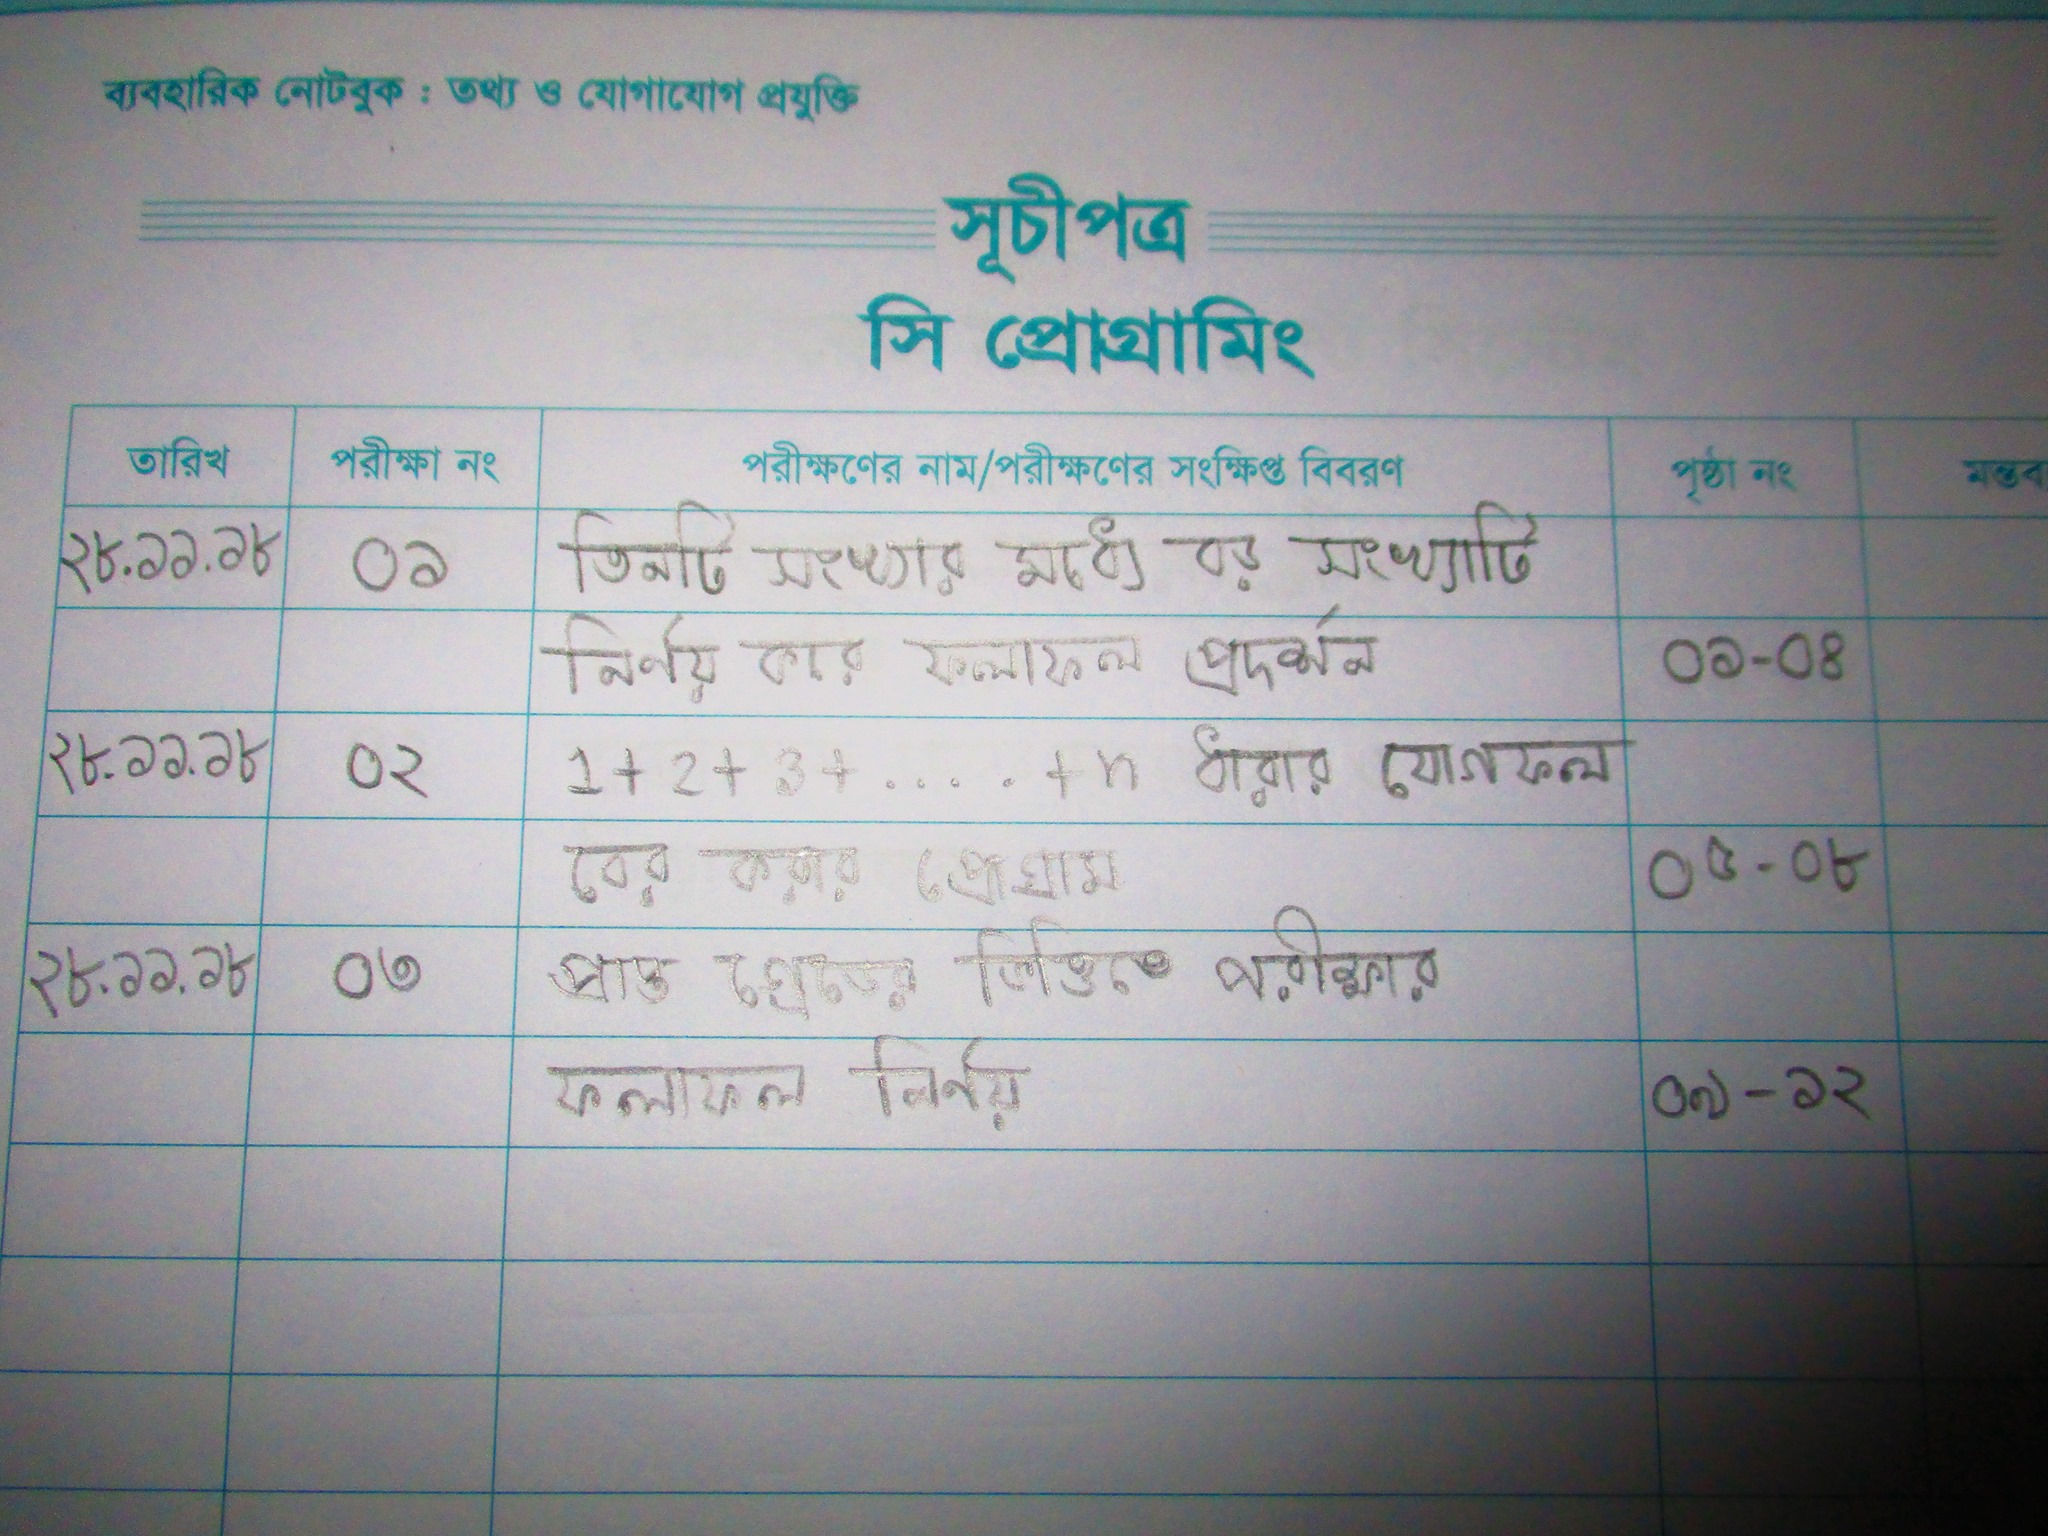 ব্যবহারিক নোটবুক : তথ্য ও যোগাযোগ প্রযুক্তি
সূচীপত্র
সি প্রোগ্রামিং
তারিখ পরীক্ষা নং পরীক্ষণের নাম/পরীক্ষণের সংক্ষিপ্ত বিবরণ পৃষ্ঠা নং
২৮.১১.১৮ ০১ তিনটি সংখ্যার মধ্যে বড় সংখ্যাটি
নির্ণয় করে ফলাফল প্রদর্শন ০১-০৪
২৮.১১.১৮ ০২ 1+2+3+.....+n ধারার যোগফল
বের করার প্রোগ্রাম ০৫-০৮
২৮.১১.১৮ ০৩ প্রাপ্ত গ্রেডের ভিত্তিতে পরীক্ষার
ফলাফল নির্ণয় ০৯-১২